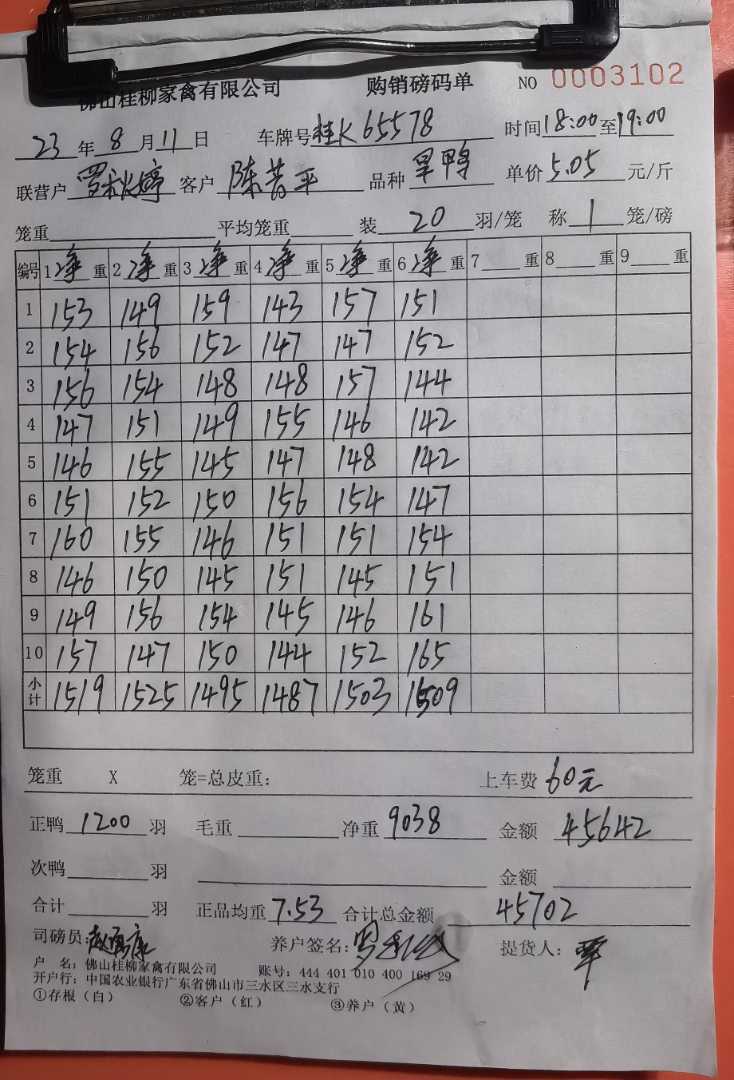 佛山桂柳家禽有限公司 购销磅码单 NO 0003102
23年8月11日 车牌号桂K65578 时间18:00至19:00
联营户罗秋婷 客户 陈 平 品种 旱鸭 单价5.05元/斤
笼重 平均笼重 装20羽/笼 称1笼/磅
编号 1净重 2净重 3净重 4净重 5净重 6净重 7重 8重 9重
1 153 149 159 143 157 151
2 154 156 152 147 147 152
3 156 154 148 148 157 144
4 147 151 149 155 146 142
5 146 155 145 147 148 142
6 151 152 150 156 154 147
7 160 155 146 151 151 154
8 146 150 145 151 145 151
9 149 156 154 145 146 161
10 157 147 150 144 152 165
小计 1519 1525 1495 1487 1503 1509
笼重 X 笼=总皮重: 上车费 60元
正鸭1200羽 毛重 净重9038 金额45642
次鸭 羽 金额
合计 羽 正品均重7.53 合计总金额 45702
司磅员: 养户签名: 提货人:
户 名: 佛山桂柳家禽有限公司 账号: 444 401 010 400 169 29
开户行: 中国农业银行广东省佛山市三水区三水支行
①存根(白) ②客户(红) ③养户(黄)